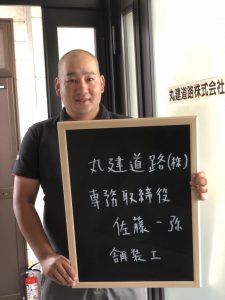 丸建道路株式会社
丸建道路(株)
専務取締役
佐藤一弥
舗装工